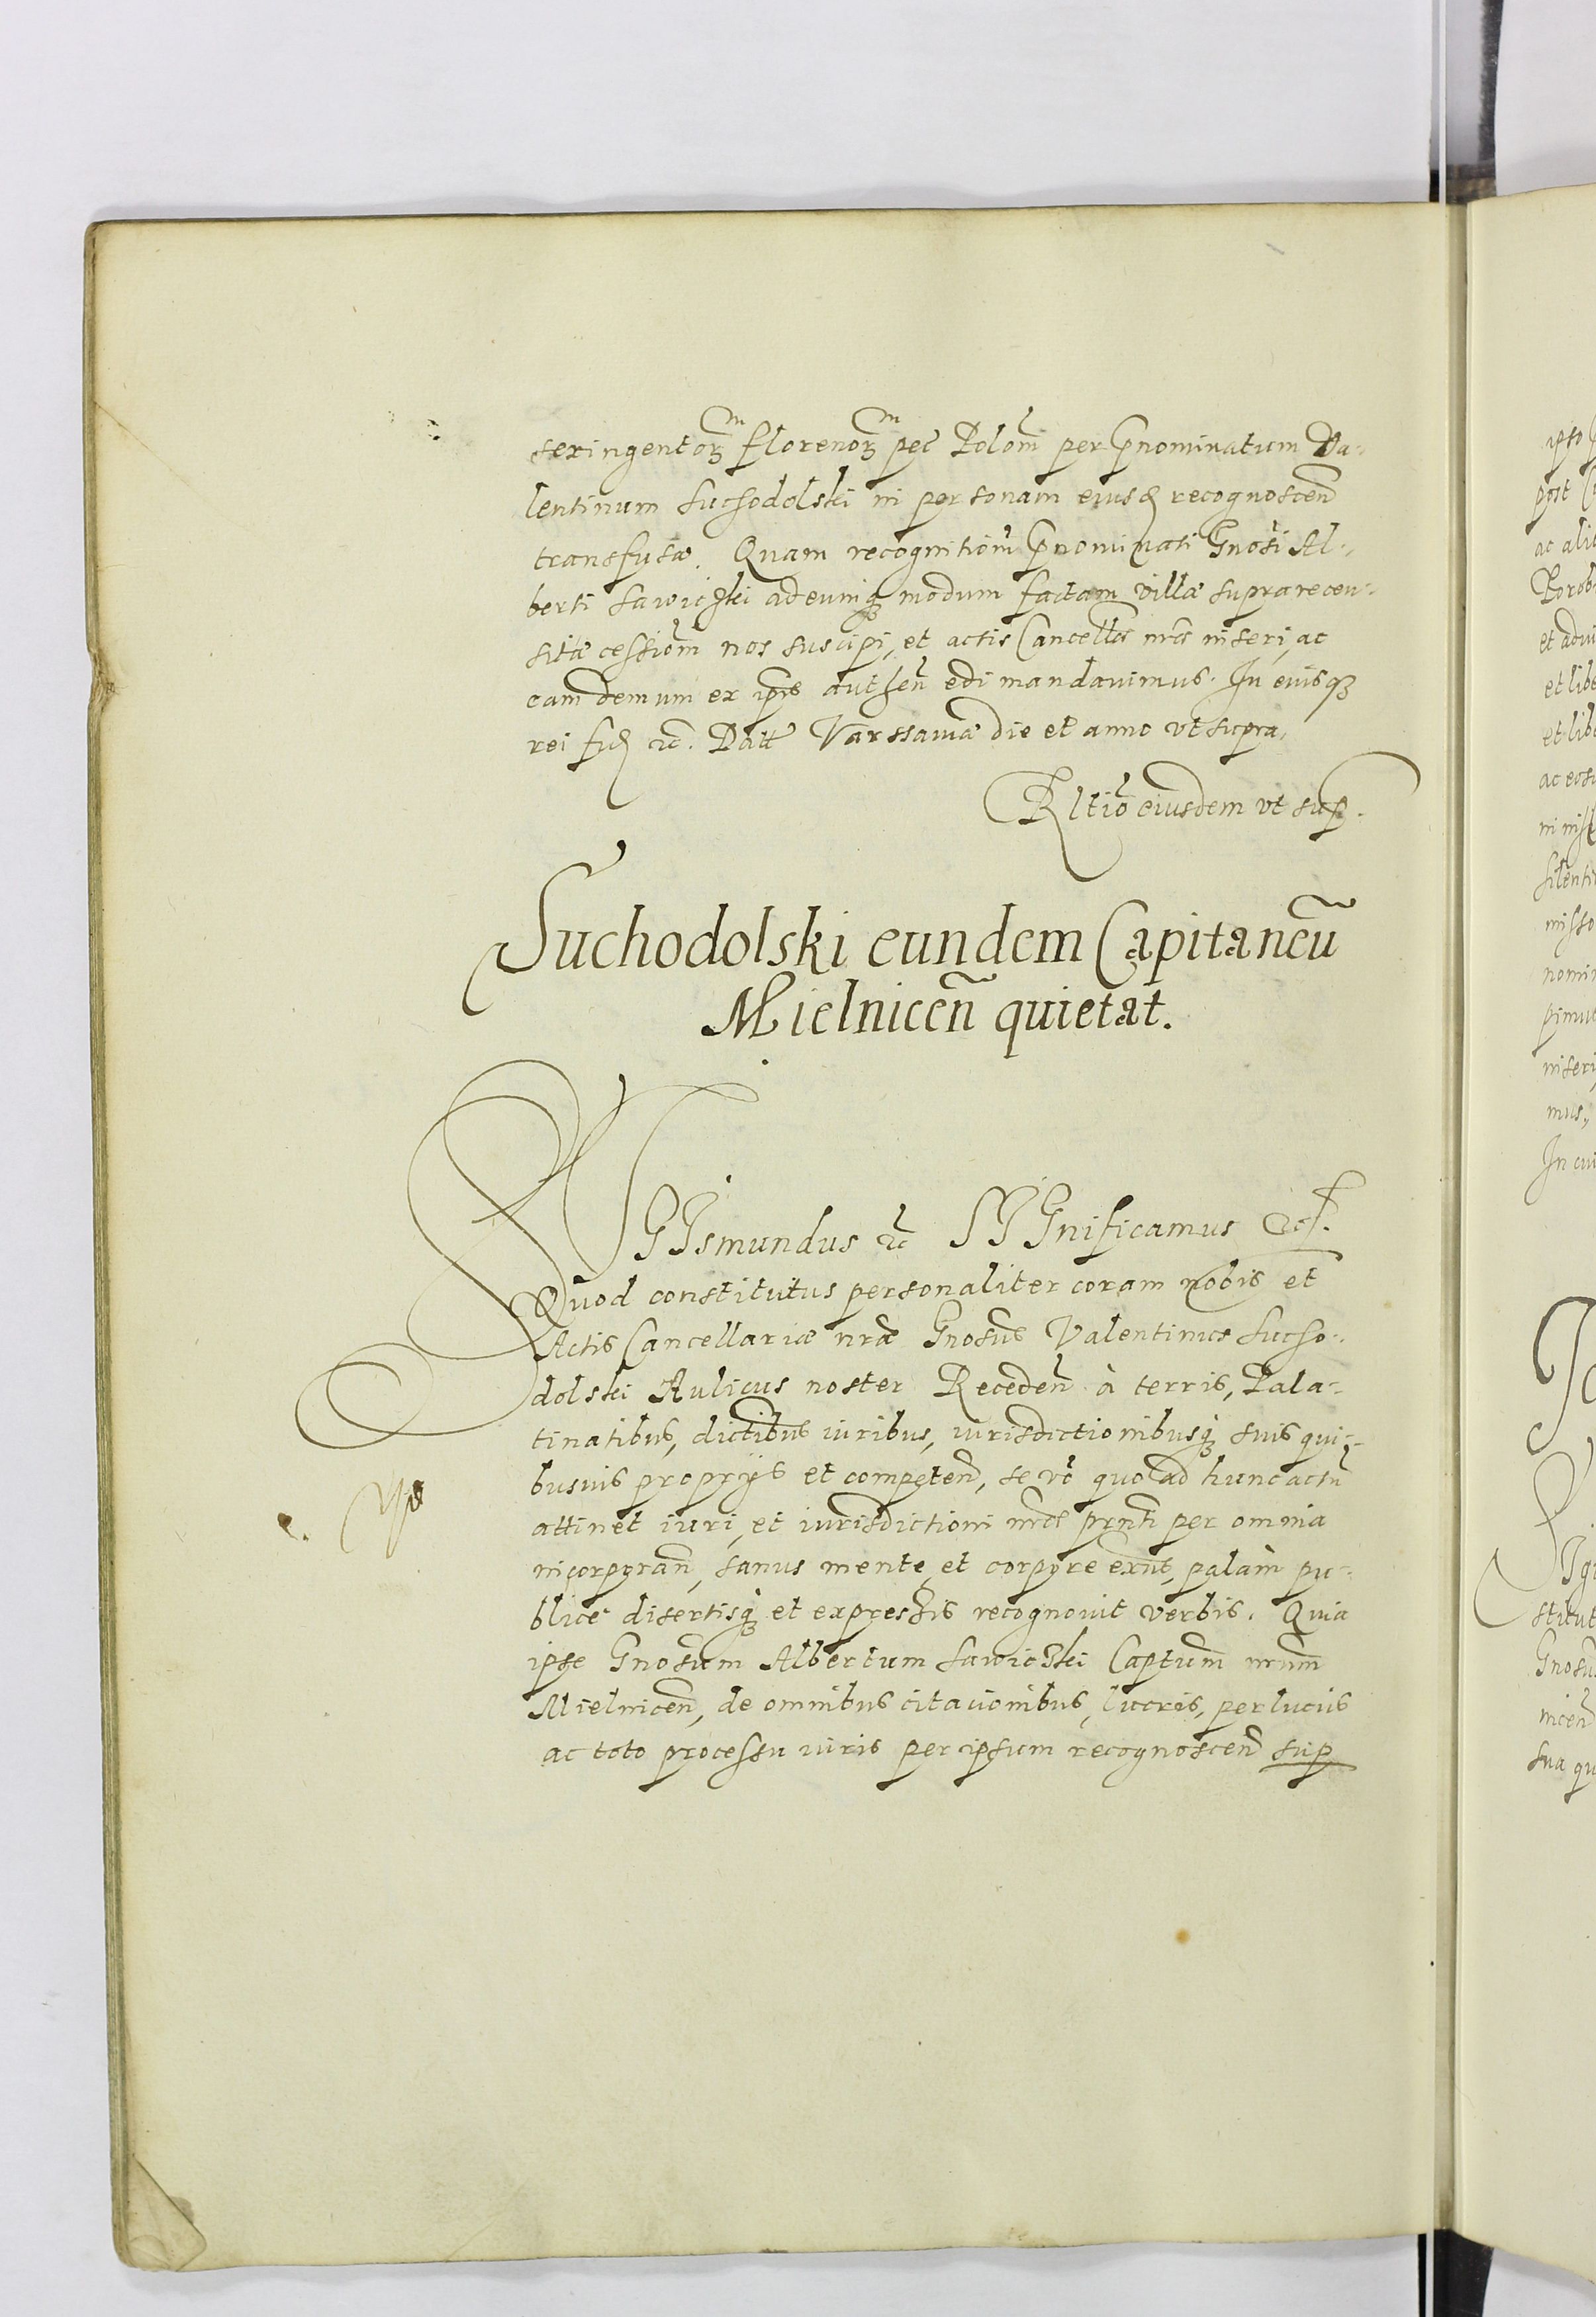 sexingentorum florenorum pec̃ Polon̄ per P̄nominatum Va-
lentinum Suchodolski in personam eiusd̃ recognoscen̄
transfusæ. Quam recognition̄ P̄nominati Gnosi Al-
berti Sawiczki ad eumq̃ modum factam villæ suprarecen-
sitæ cession̄ nos suscipi, et actis Cancellæ nr̄æ inseri, ac
eam demum ex ip̄is authen̄ edi mandavimus. In cuius q̃
rei fid̃ etc. Datt Varssaviæ die et anno vt supra.
Rl̄tio eiusdem vt sup.
Suchodolski eundem Capitaneū
Mielnicen̄ quietat.
SIGIsmundus etc SIGnificamus etc.
Quod constitutus personaliter coram nobis et
Actis Cancellariæ nr̄æ Gnosus Valentinus Sucho-
dolski Aulicus noster Receden̄ à terris, Pala-
tinatibus, dictibus iuribus, iurisdictionibusq̃ suis qui-
busuis proprijs et competen̄, se vō quo ad hunc actū
attinet iuri, et iurisdictioni nr̄æ prn̄ti per omnia
incorporan̄, sanus mente, et corpore exn̄t, palàm pu-
blicè disertisq̃ et expressis recognouit verbis. Quia
ipse Gnosum Albertum Sawiczki Captum̄ nr̄um
Mielnicen̄, de omnibus citationibus, lucris, perlucris
ac toto processu iuris per ipsum recognoscen̄ sup